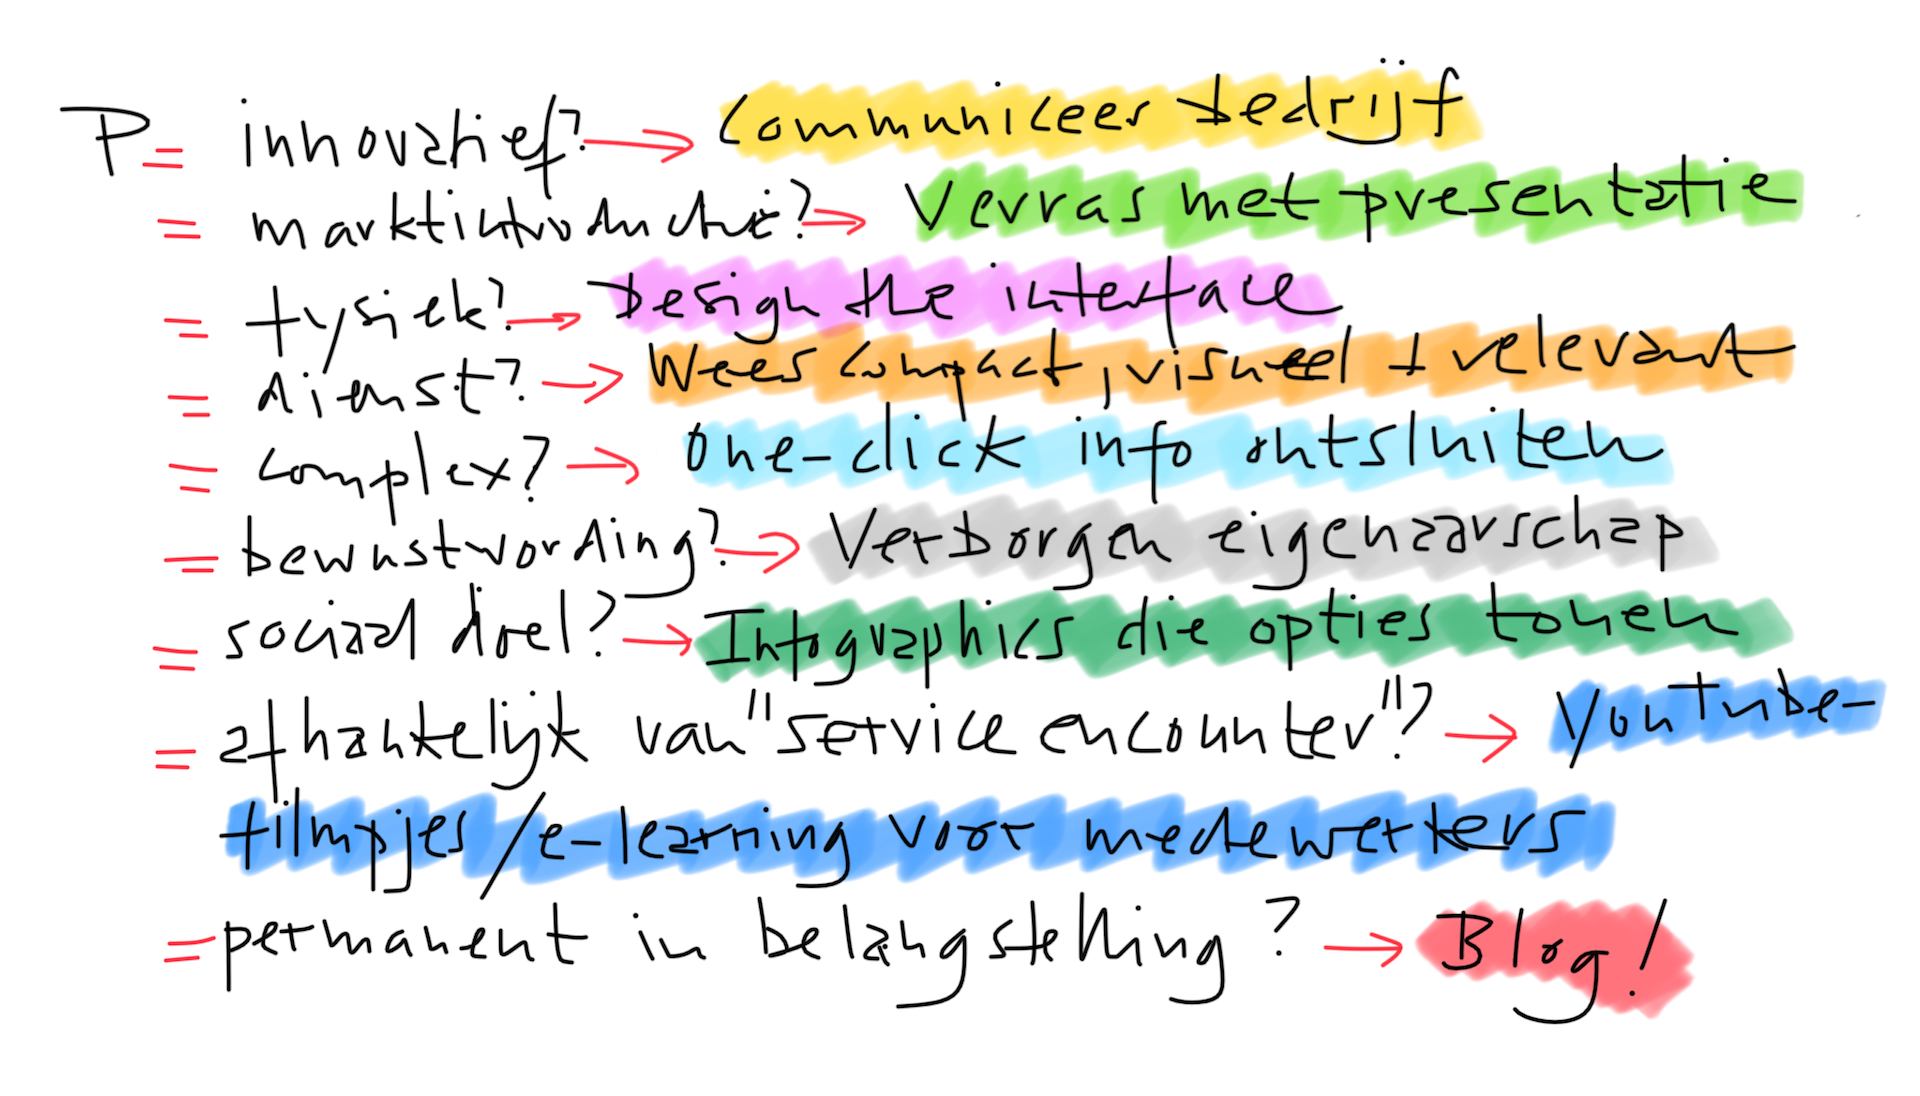 P = innovatief? → Communiceer bedrijf
= marktintroductie? → Verras met presentatie
= fysiek? → Design the interface
= dienst? → Wees compact, visueel + relevant
= complex? → One-click info ontsluiten
= bewustwording? → Verborgen eigenaarschap
= sociaal doel? → Infographics die opties tonen
= afhankelijk van "service encounter"? → YouTube-
filmpjes/e-learning voor medewerkers
= permanent in belangstelling? → Blog!